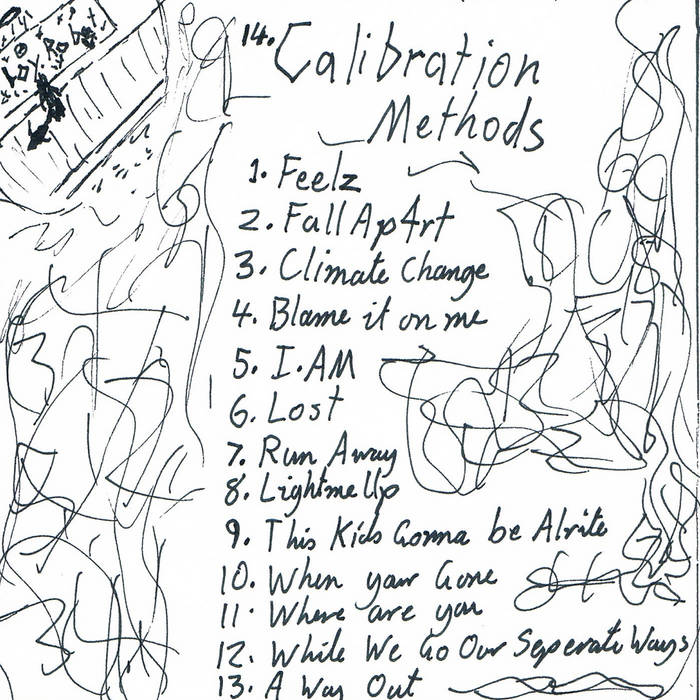 14. Calibration
Methods
1. Feelz
2. Fall Ap4rt
3. Climate Change
4. Blame it on me
5. I.AM
6. Lost
7. Run Away
8. LightmeUp
9. This Kids Gonna be Alrite
10. When your Gone
11. Where are you
12. While We Go Our Seperate Ways
13. A Way Out